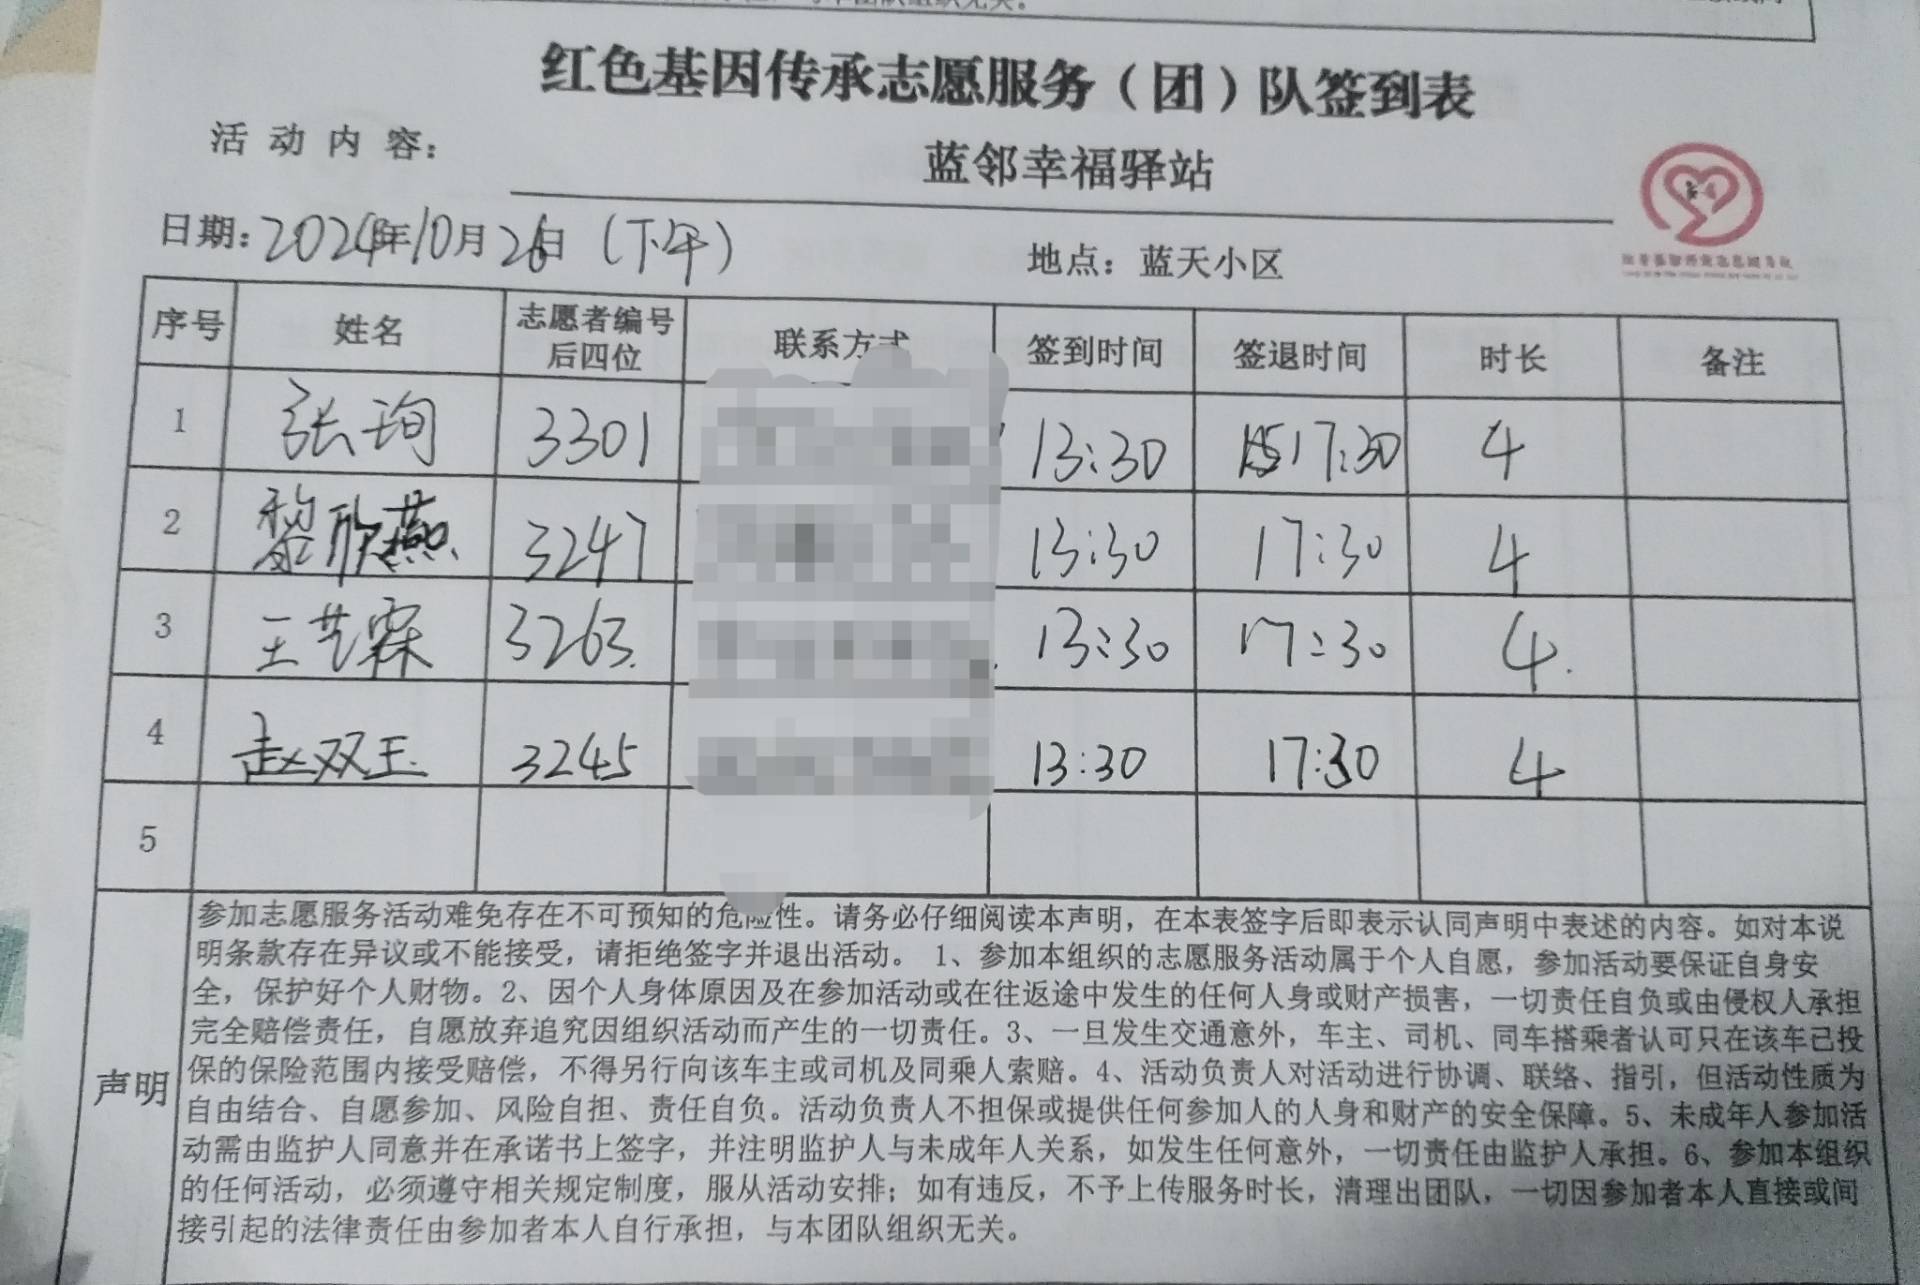 红色基因传承志愿服务（团）队签到表
活动内容： 蓝邻幸福驿站
日期：2024年10月26日（下午） 地点：蓝天小区
序号 姓名 志愿者编号后四位 联系方式 签到时间 签退时间 时长 备注
1 张珣 3301 13:30 17:30 4
2 黎欣燕 3247 13:30 17:30 4
3 王艺霖 3263. 13:30 17:30 4.
4 赵双玉 3245 13:30 17:30 4
5
声明
参加志愿服务活动难免存在不可预知的危险性。请务必仔细阅读本声明，在本表签字后即表示认同声明中表述的内容。如对本说
明条款存在异议或不能接受，请拒绝签字并退出活动。 1、参加本组织的志愿服务活动属于个人自愿，参加活动要保证自身安
全，保护好个人财物。2、因个人身体原因及在参加活动或在往返途中发生的任何人身或财产损害，一切责任自负或由侵权人承担
完全赔偿责任，自愿放弃追究因组织活动而产生的一切责任。3、一旦发生交通意外，车主、司机、同车搭乘者认可只在该车已投
保的保险范围内接受赔偿，不得另行向该车主或司机及同乘人索赔。4、活动负责人对活动进行协调、联络、指引，但活动性质为
自由结合、自愿参加、风险自担、责任自负。活动负责人不担保或提供任何参加人的人身和财产的安全保障。5、未成年人参加活
动需由监护人同意并在承诺书上签字，并注明监护人与未成年人关系，如发生任何意外，一切责任由监护人承担。6、参加本组织
的任何活动，必须遵守相关规定制度，服从活动安排；如有违反，不予上传服务时长，清理出团队，一切因参加者本人直接或间
接引起的法律责任由参加者本人自行承担，与本团队组织无关。